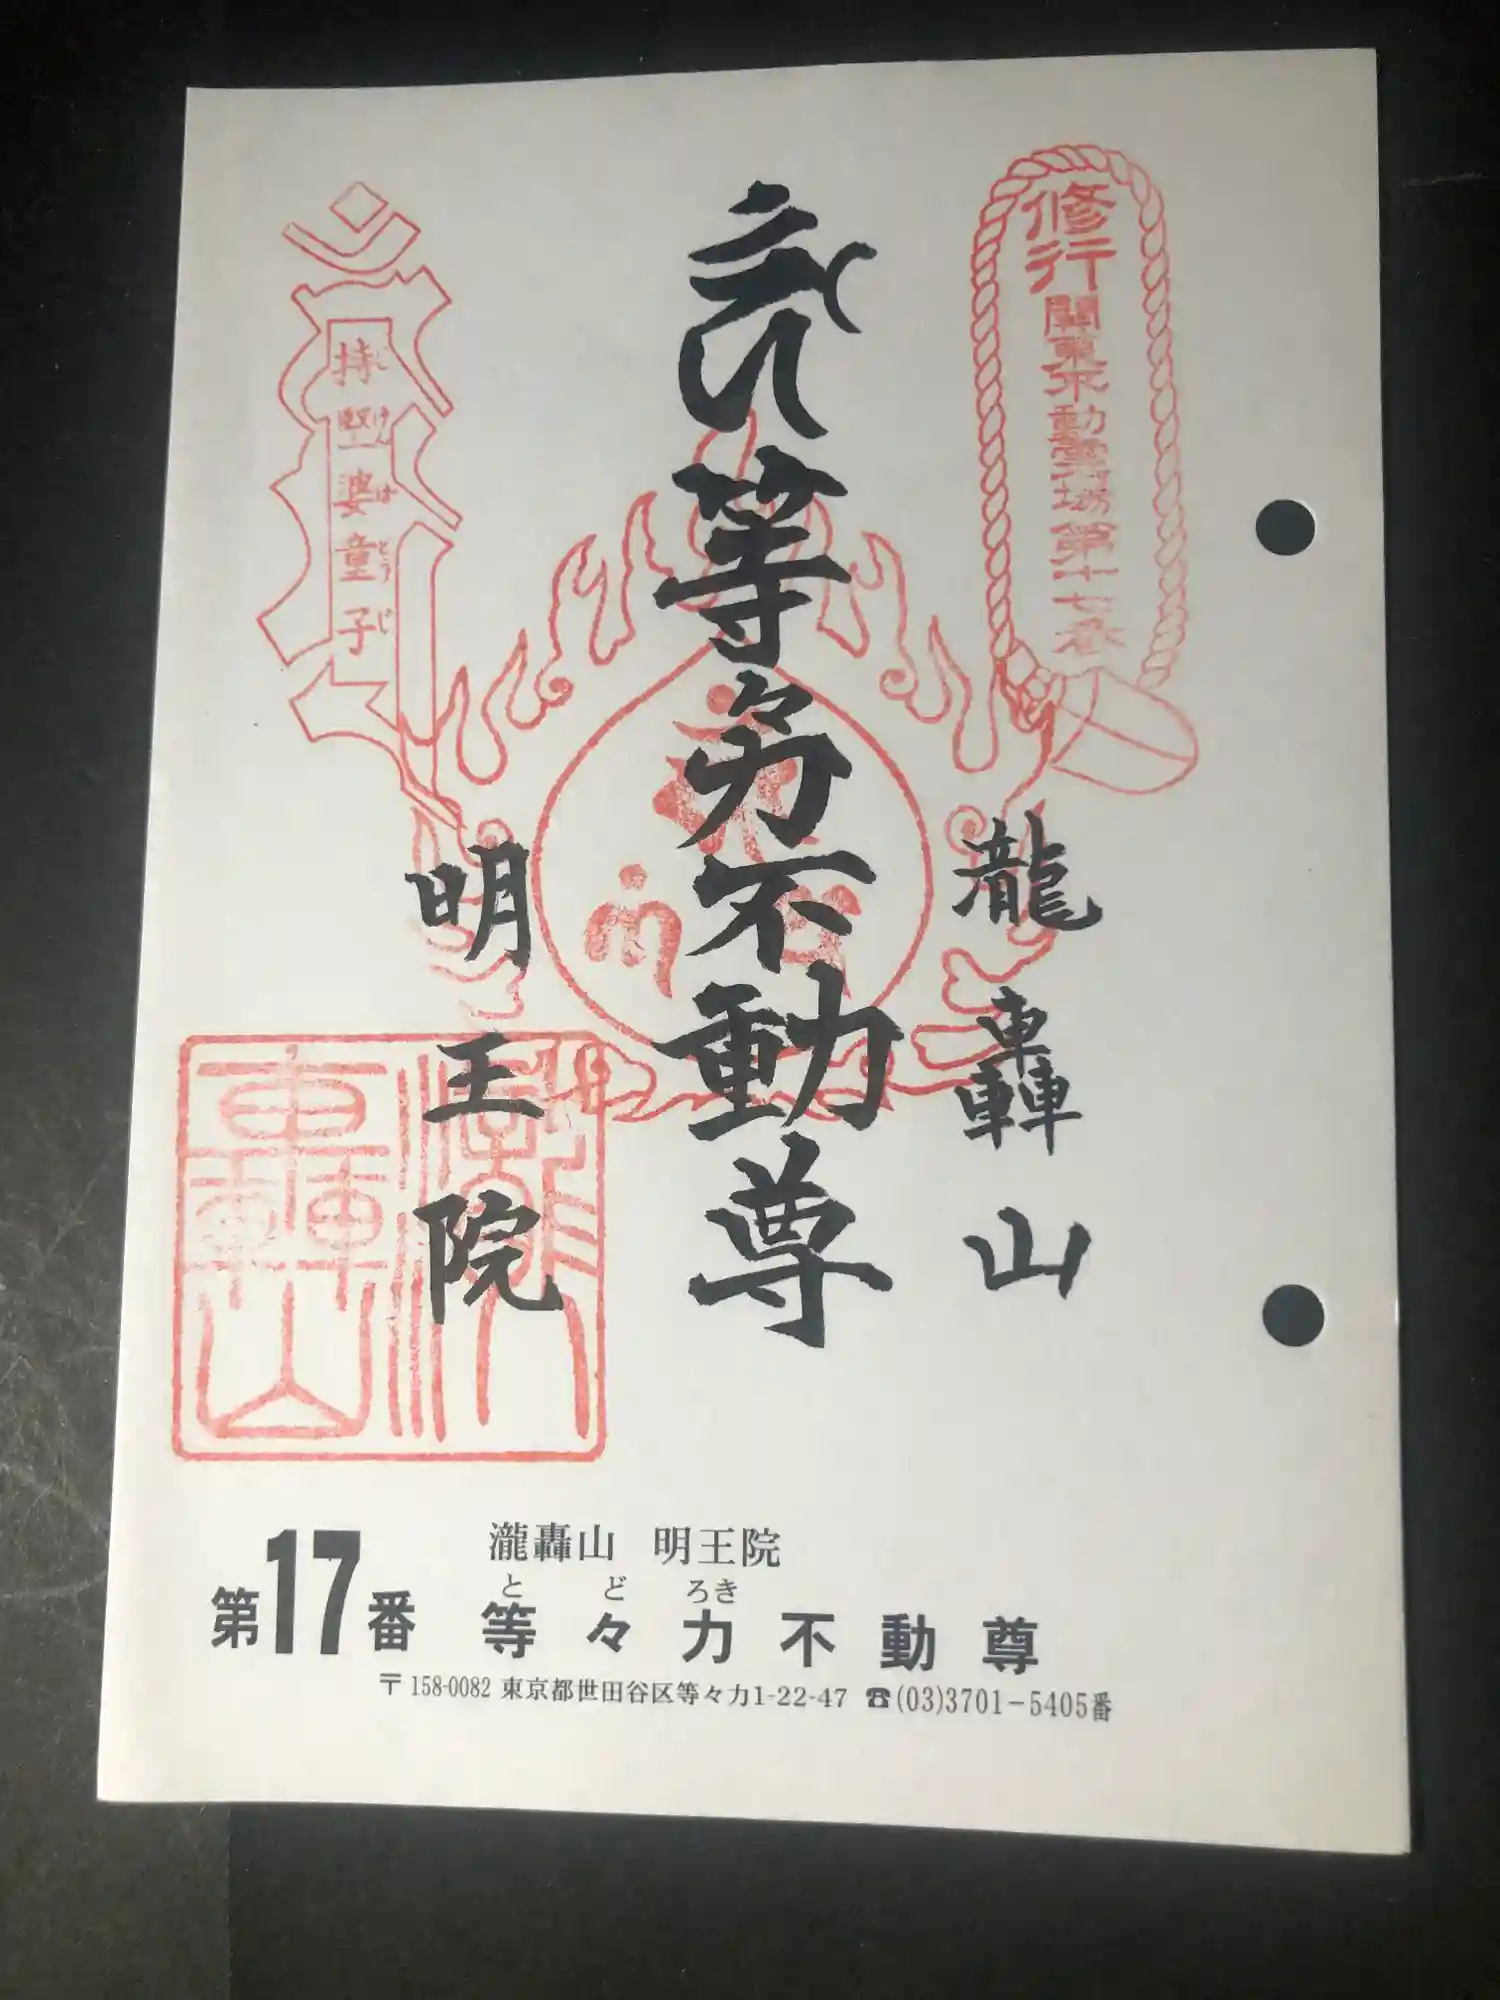 修行
關東不動霊場第十七番
瀧轟山
等々力不動尊
明王院
持堅婆童子
じけんばどうじ
瀧轟山
瀧轟山 明王院
とどろき
第17番 等々力不動尊
〒158-0082 東京都世田谷区等々力1-22-47 ☎(03)3701-5405番